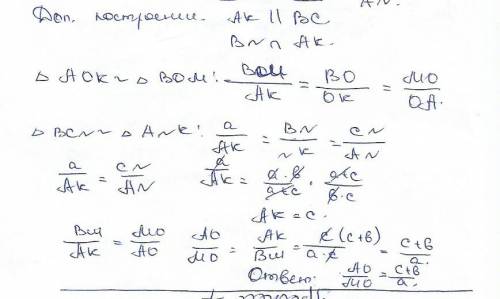 AN.
Доп. построении. AK || BC
BN ∩ AK.
△ AOK ~ △ BOM: BM/AK = BO/OK = MO/OA.
△ BCN ~ △ ANK: a/AK = BN/NK = CN/AN
a/AK = CN/AN
AK = c.
BM/AK = MO/AO AO/MO = AK/BM = c(c+b)/a·c = c+b/a.
Ответ: AO/MO = c+b/a.